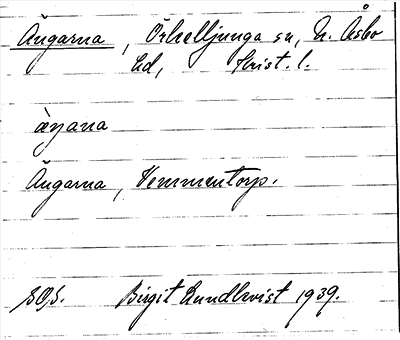 Ängarna, Örkelljunga sn, N. Åsbo
hd, Krist. l.
àŋana
Ängarna, Vemmentorp.
SOS. Birgit Lundkvist 1939.